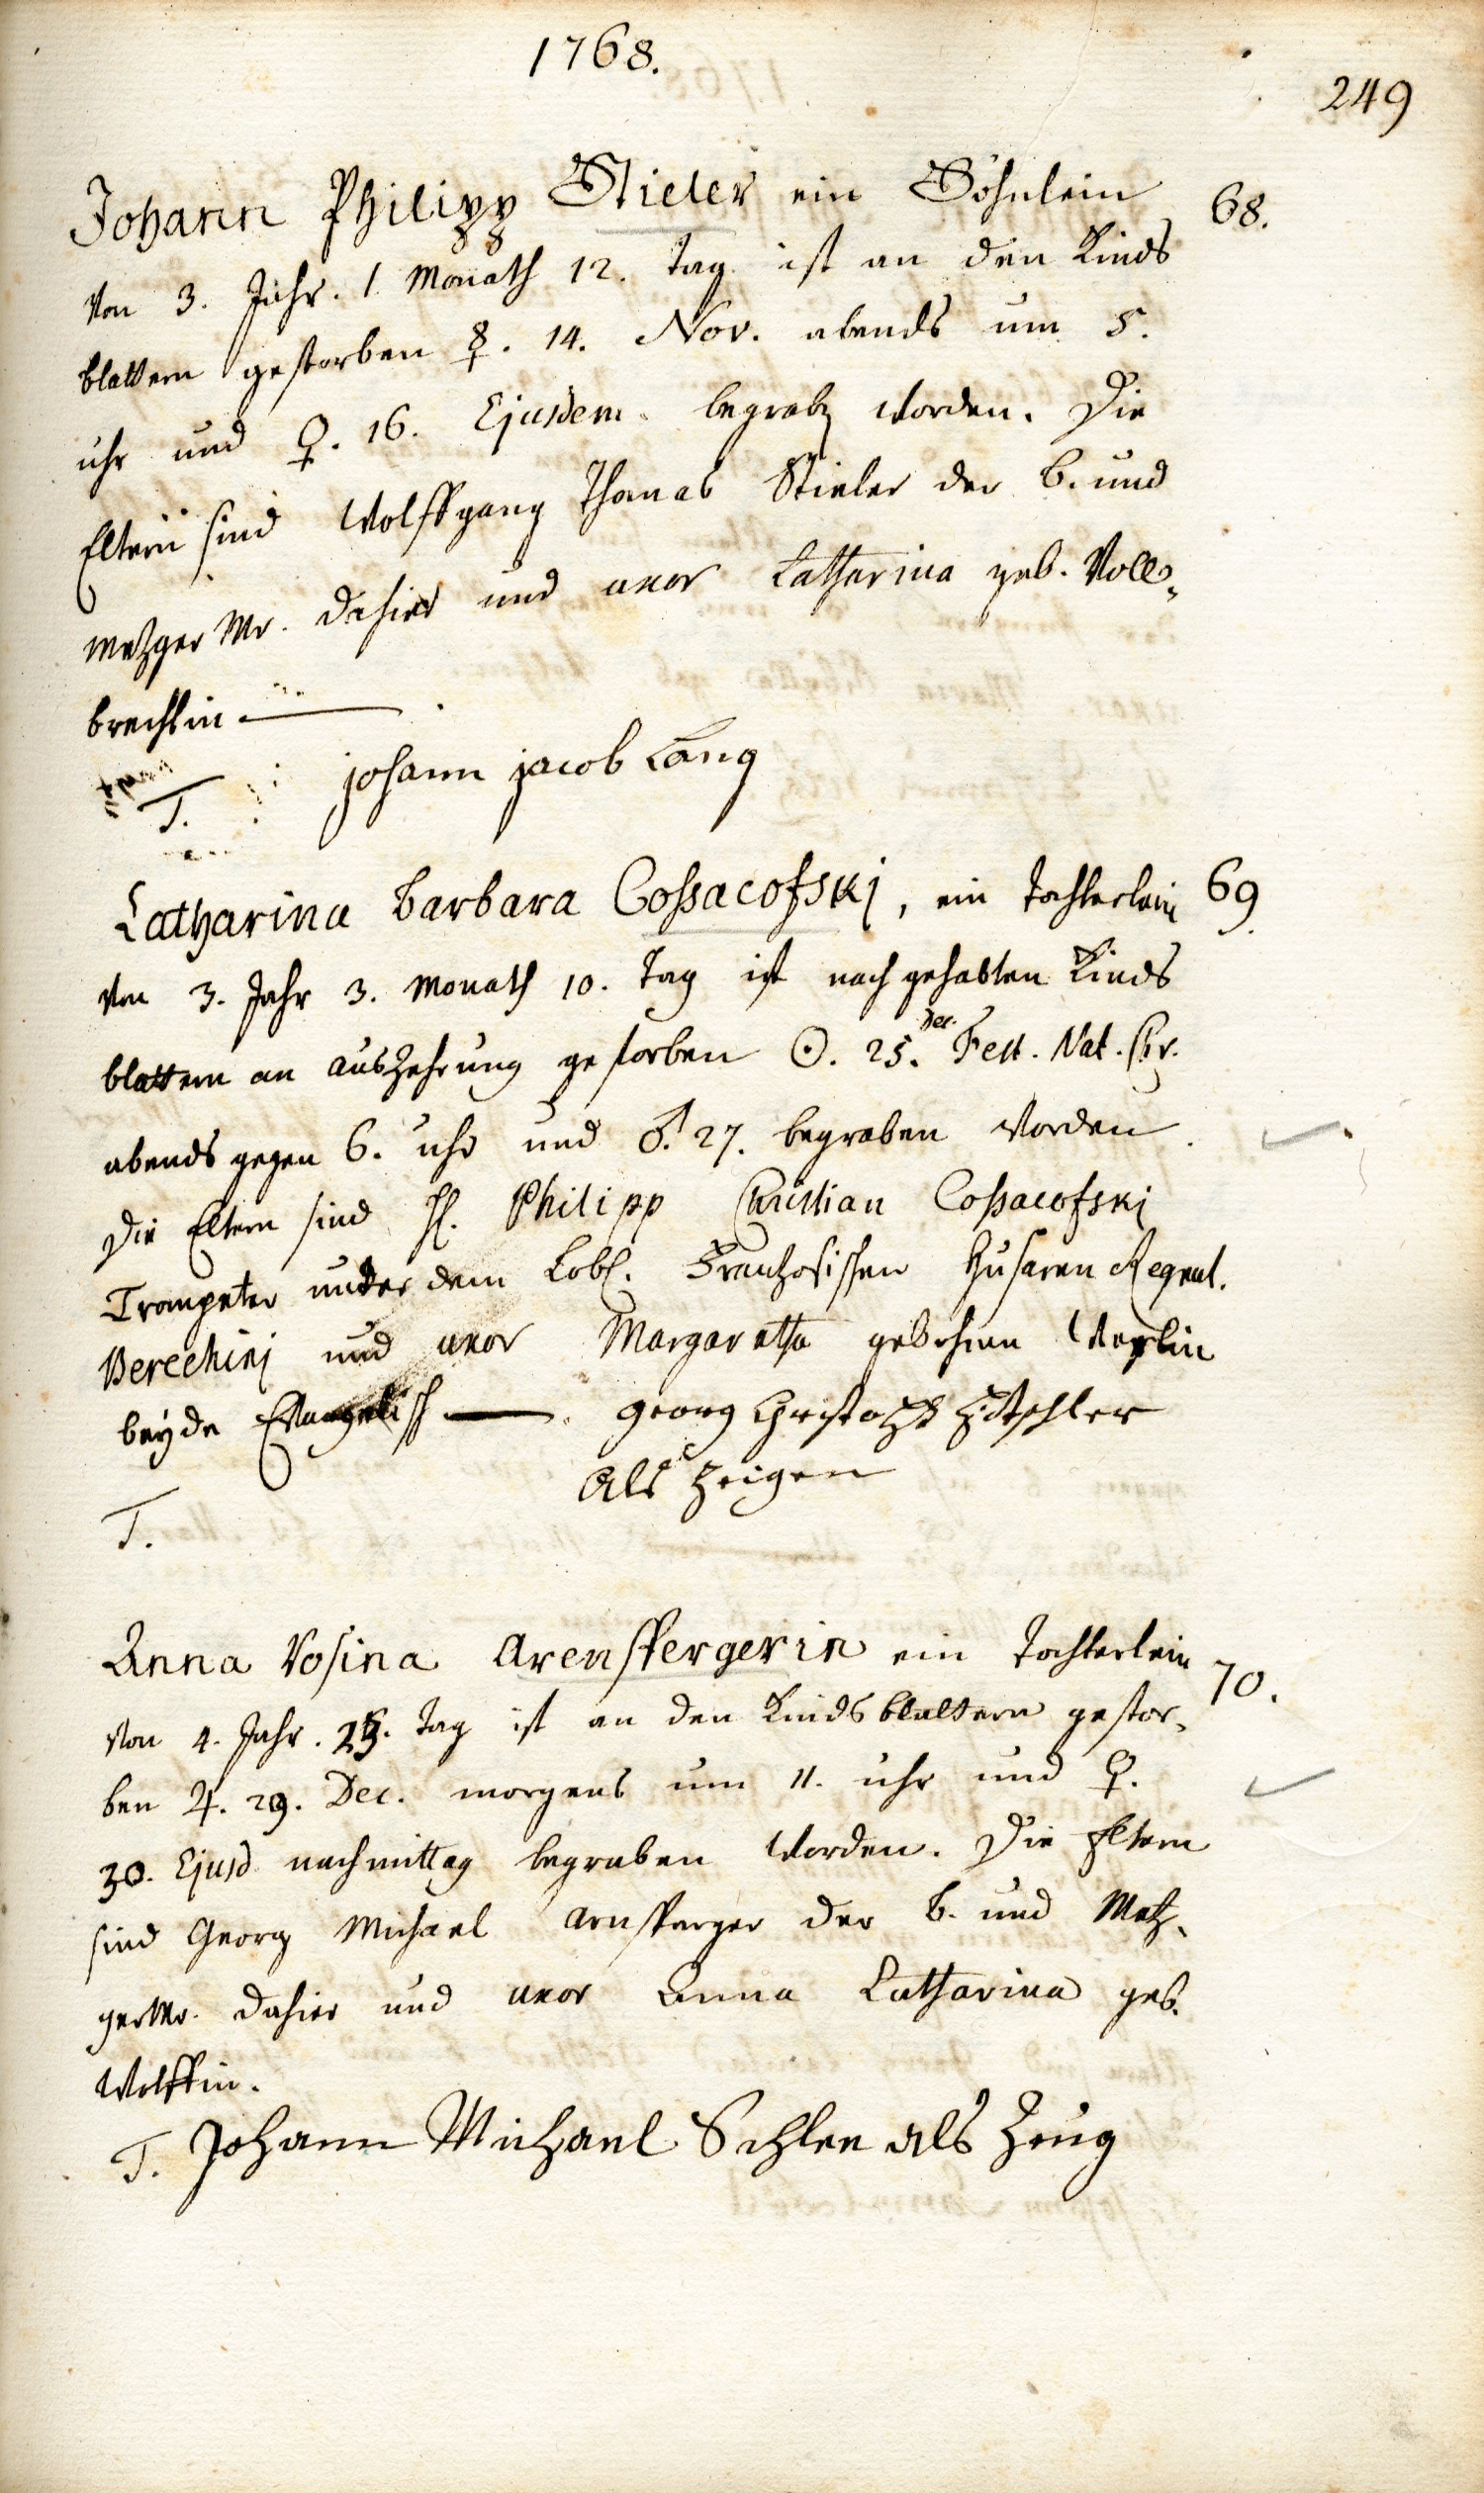 1768.
249
Johann Philipp Stieler ein Söhnlein 68.
von 3. Jahr. 1. Monath 12. Tag ist an den Kinds
blattern gestorben ☿. 14. Nov. abends um 5.
uhr und ♀. 16. Ejusdem begrab worden. Die
Eltern sind Wolffgang Thomas Stieler der B. und
Metzger Mr. dahier und uxor Catharina geb. Voll-
brechtin
T. Johann Jacob Lang
Catharina Barbara Coßacofski, ein Tochterlein 69.
von 3. Jahr 3. Monath 10. Tag ist nach gehabten Kinds
blattern an auszehrung gestorben ☉. 25. Dec. Fest. Nat. Chr.
abends gegen 6. uhr und ♂. 27. begraben worden.
Die Eltern sind H. Philipp Christian Coßacofski
Trompeter under dem Lobl. Franzosischen Husaren Regmt.
Berechini und uxor Margaretha gebohrne
beyde Evangelisch. Georg Christoph
Als Zeigen
T.
Anna Rosina Arenspergerin ein Tochterlein 70.
von 4. Jahr. 25. Tag ist an den Kindsblattern gestor-
ben ♃. 29. Dec. morgens um 11. uhr und ♀.
30. Ejusd. nachmittag begraben worden. Die Eltern
sind Georg Michael Arnsperger der B. und Metz-
ger Mr. dahier und uxor Anna Catharina geb.
Wolffin.
T. Johann Michael Schlee als Zeug